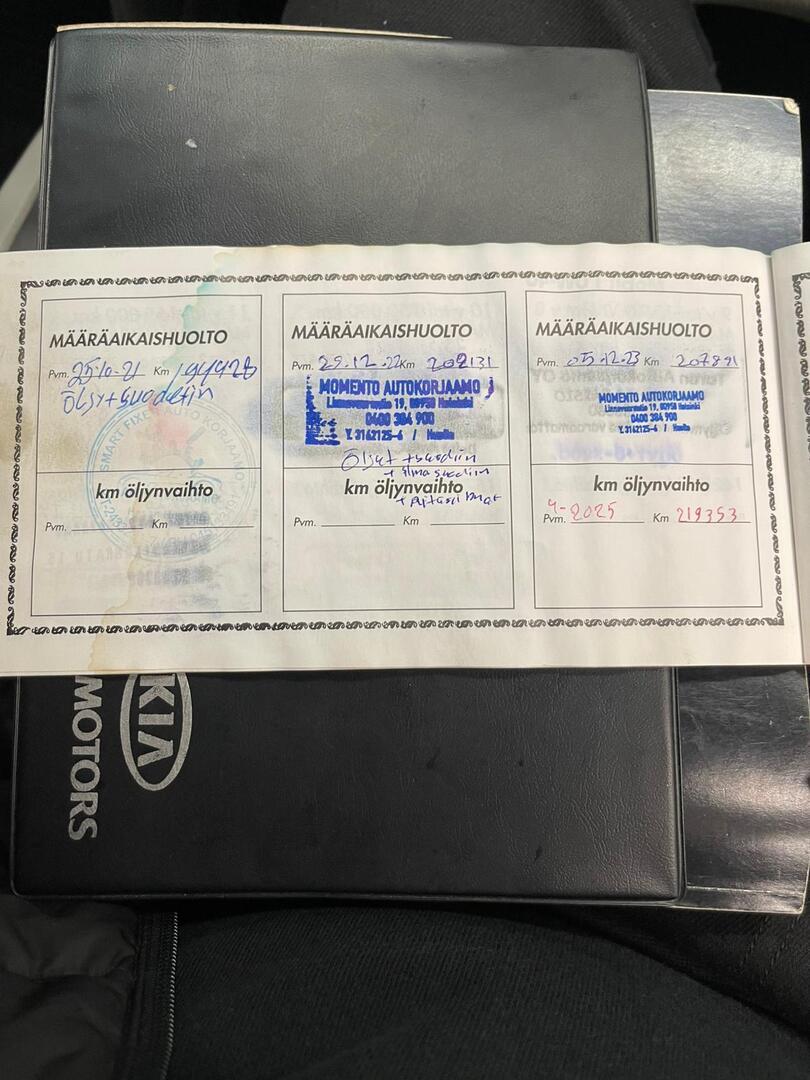 MÄÄRÄAIKAISHUOLTO
Pvm. 25.10-21 Km 194426
Öljy+suodatin
SMART FIXER AUTO
km öljynvaihto
Pvm. Km
MÄÄRÄAIKAISHUOLTO
Pvm. 29.12.22 Km 202131
MOMENTO AUTOKORJAAMO
Linnavuorentie 19, 00950 Helsinki
0400 384 900
Y.3162125-6 / Huolto
Öljyt +suodin
+ ilmasuodin
km öljynvaihto
Pvm. Km
MÄÄRÄAIKAISHUOLTO
Pvm. 05.12.23 Km 207891
MOMENTO AUTOKORJAAMO
Linnavuorentie 19, 00950 Helsinki
0400 384 900
Y.3162125-6 / Huolto
km öljynvaihto
Pvm. 4-2025 Km 219353
KIA
MOTORS